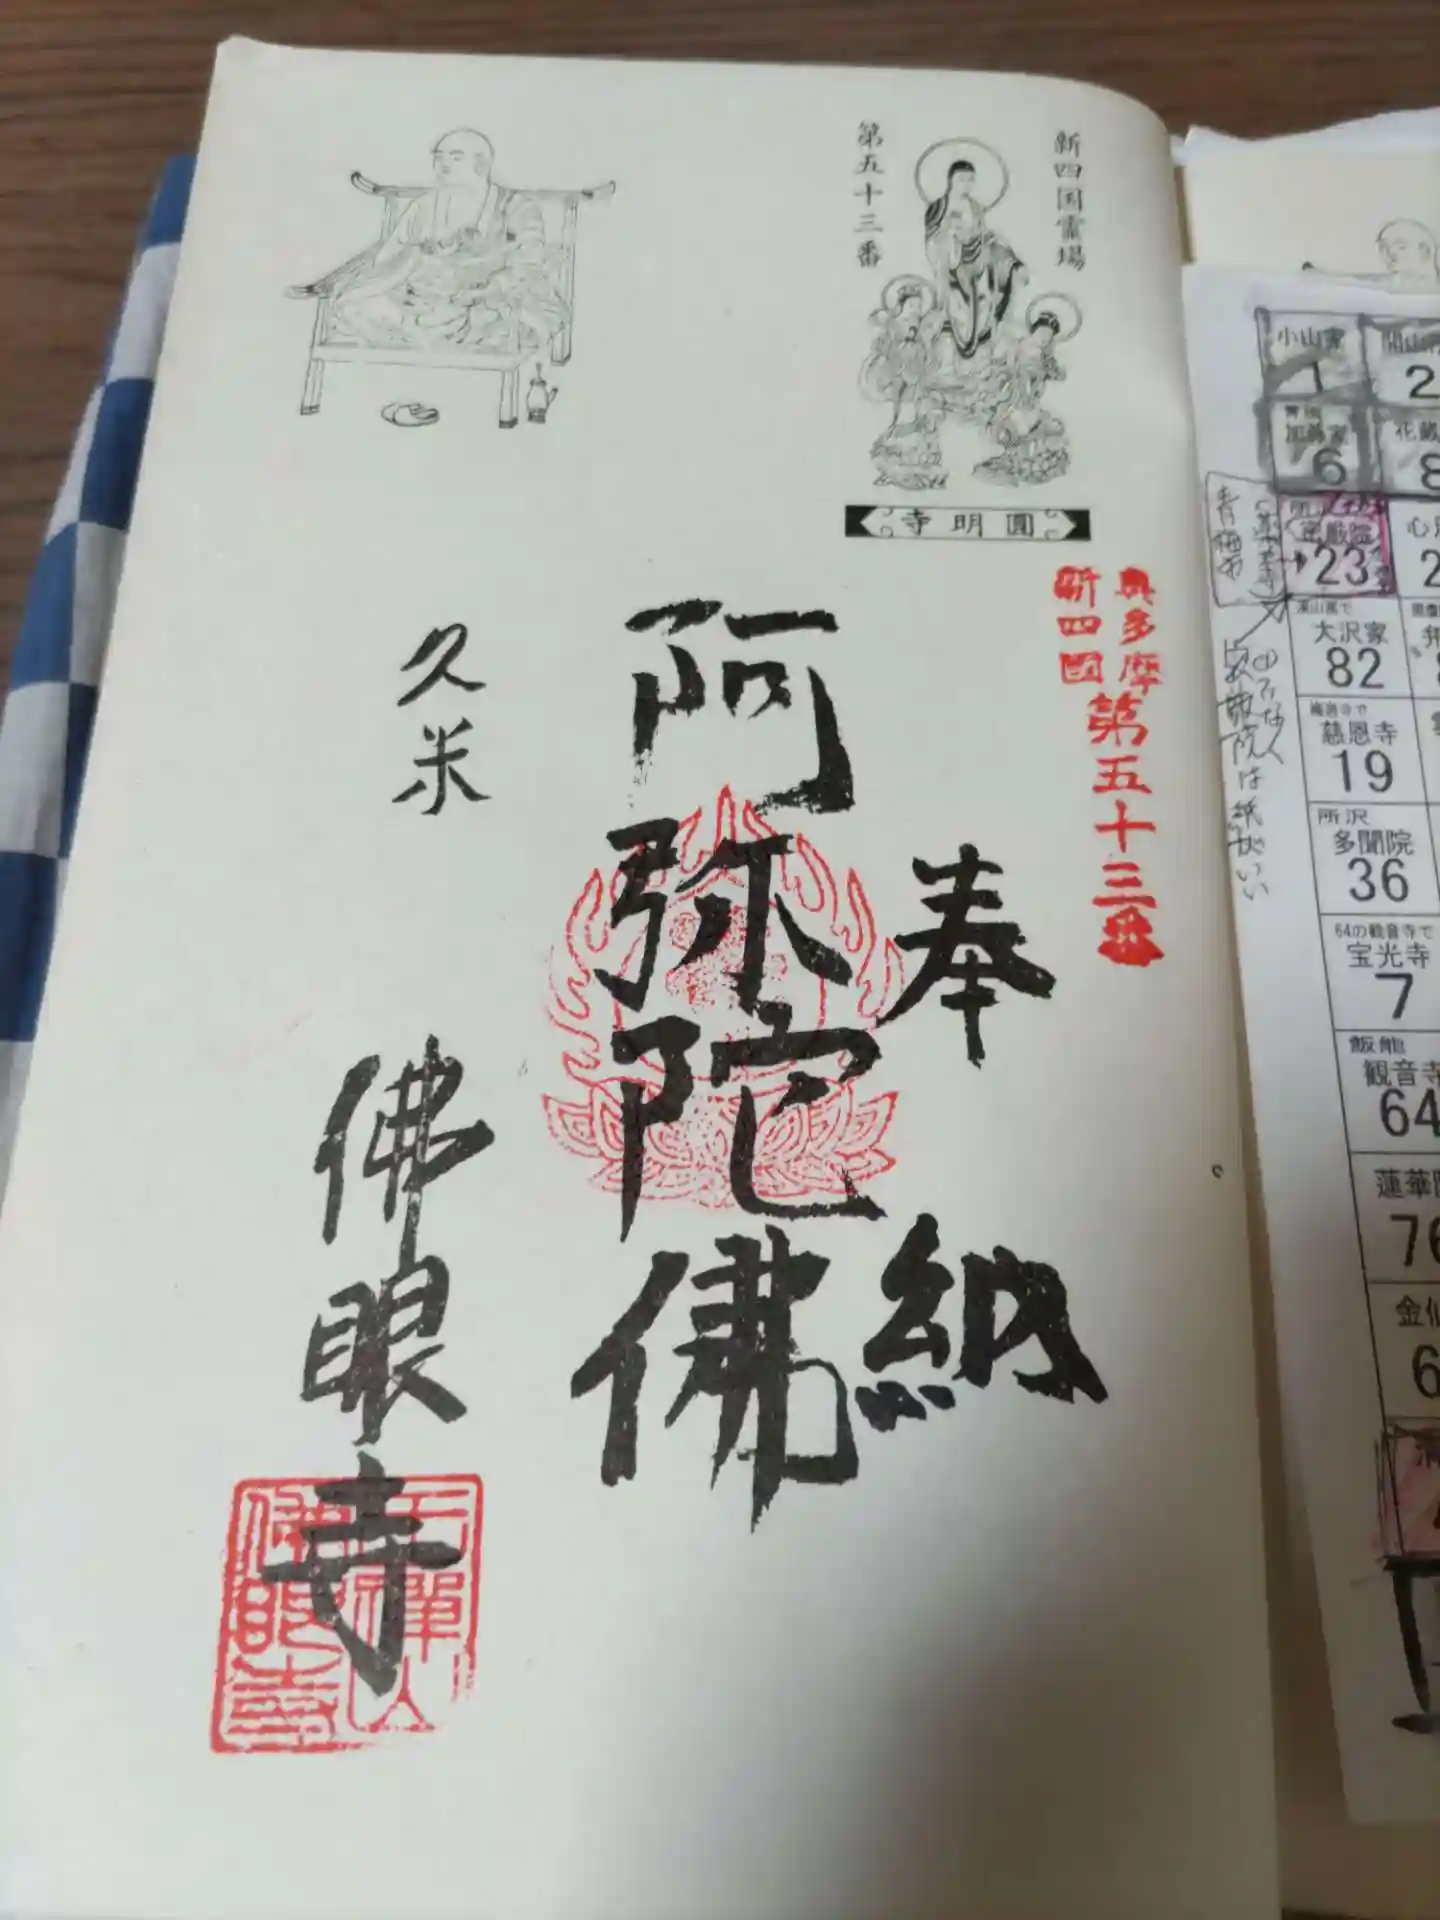 新四国霊場
第五十三番
圓明寺
奥多摩
新四國
第五十三番
奉納
阿弥陀佛
久米
佛眼寺
佛眼寺
小山家
1
2
加藤家
6
8
密厳院
23
心
2
青梅市
大沢家
82
梅岩寺で
慈恩寺
19
所沢
多聞院
36
64の観音寺で
宝光寺
7
飯能
観音寺
64
蓮華
76
金仙
6
密厳院は紙でいい